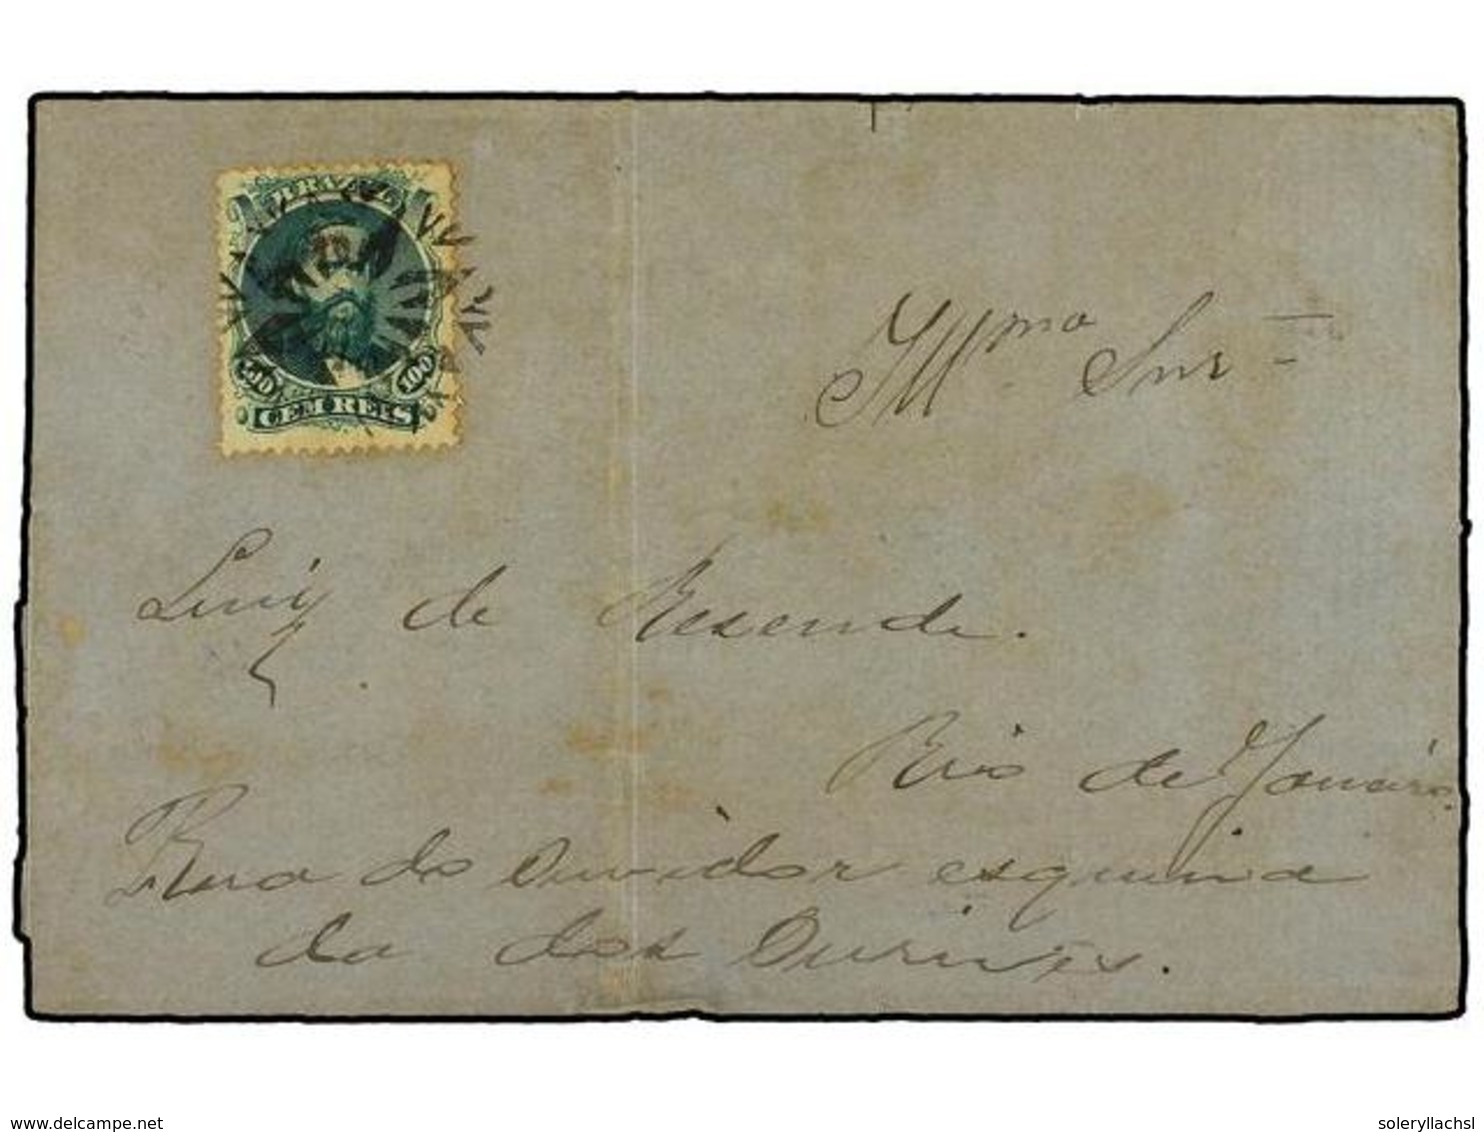 BRAZIL
100 100
CEM REIS
Illmo Snr
Luiz de Resende.
Rio de Janeiro.
Rua do Ouvidor esquina
da dos Ourives.
www.delcampe.net
soleryllachsl